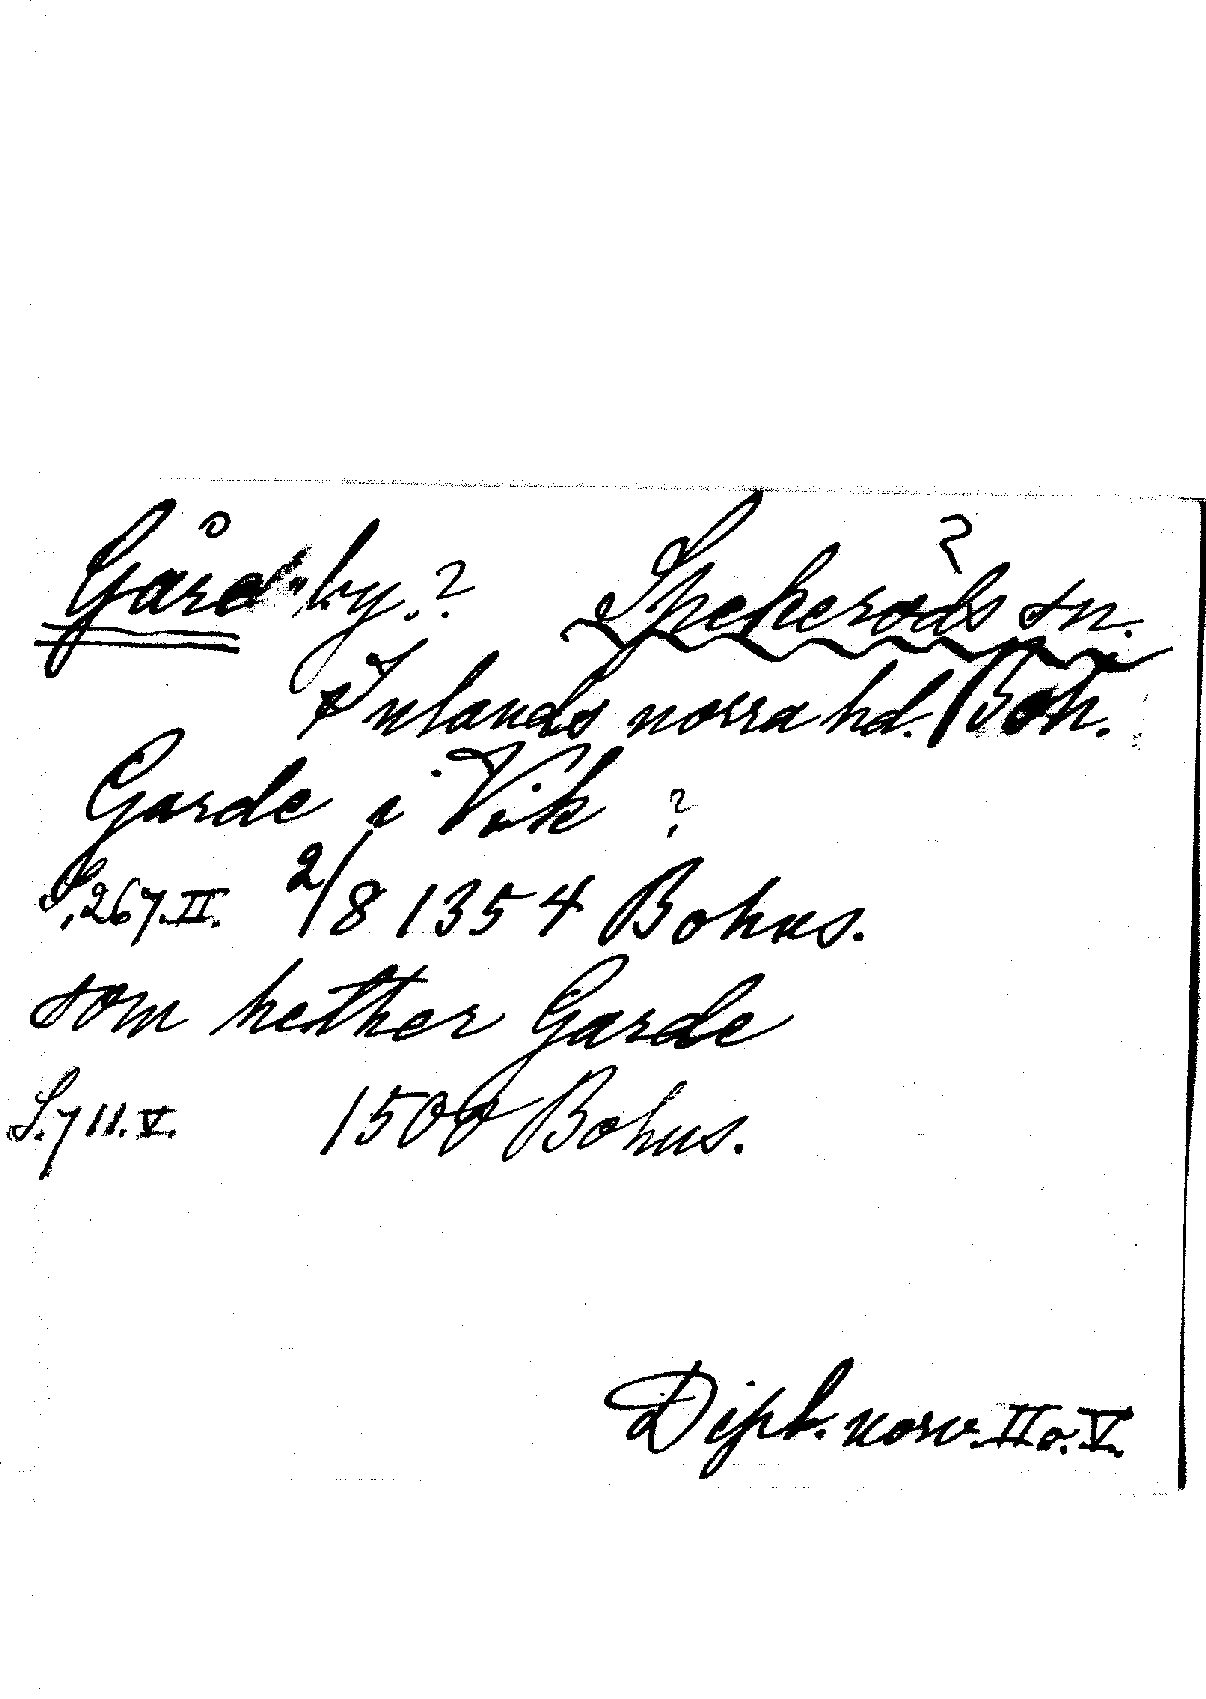 Gårdsby.? Spekeröds sn. ?
Inlands norra hd. Boh.
Garde i Vik ?
S. 267. II. 2/8 1354 Bohus.
som heither Garde
S. 711. V. 1500 Bohus.
Dipl. norv. II o. V.